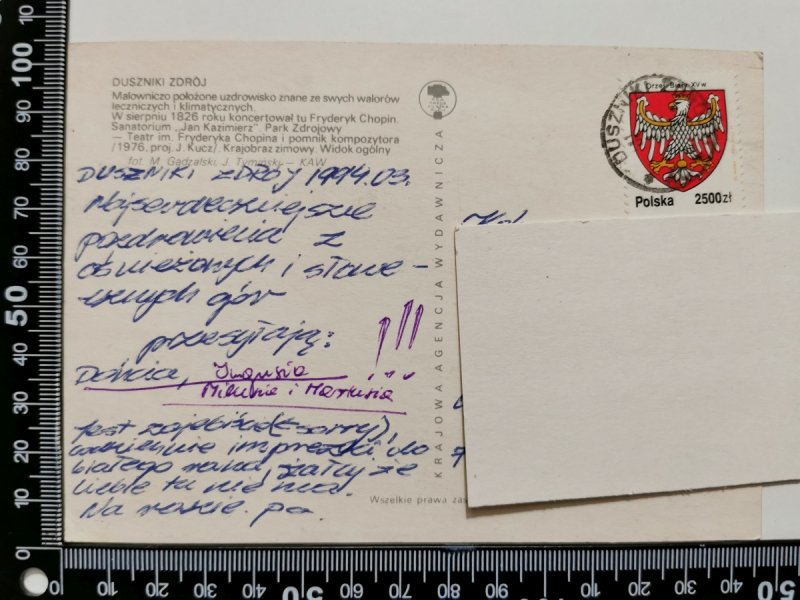 DUSZNIKI ZDRÓJ
Malowniczo położone uzdrowisko znane ze swych walorów
leczniczych i klimatycznych.
W sierpniu 1826 roku koncertował tu Fryderyk Chopin.
Sanatorium „Jan Kazimierz”. Park Zdrojowy
— Teatr im. Fryderyka Chopina i pomnik kompozytora
/1976, proj. J. Kucz/. Krajobraz zimowy. Widok ogólny
fot. M. Gądzalski, J. Tymiński — KAW
DUSZNIKI ZDRÓJ 1994.03.
Najserdeczniejsze
pozdrowienia z
ośnieżonych i słone-
cznych gór
przesyłają:
!!!
Milusia i Martusia
Jest (sorry),
codziennie imprezki do
białego rana, żałuj że
Ciebie tu nie ma.
Na razie. pa.
KRAJOWA AGENCJA WYDAWNICZA
Wszelkie prawa zas
DUSZNIKI
Orzeł Biały XV w
Polska 2500zł
100
50
90
80
70
60
40
30
20
10
0
0 10 20 30 40 50 60 70 80 90 100 10 20 30